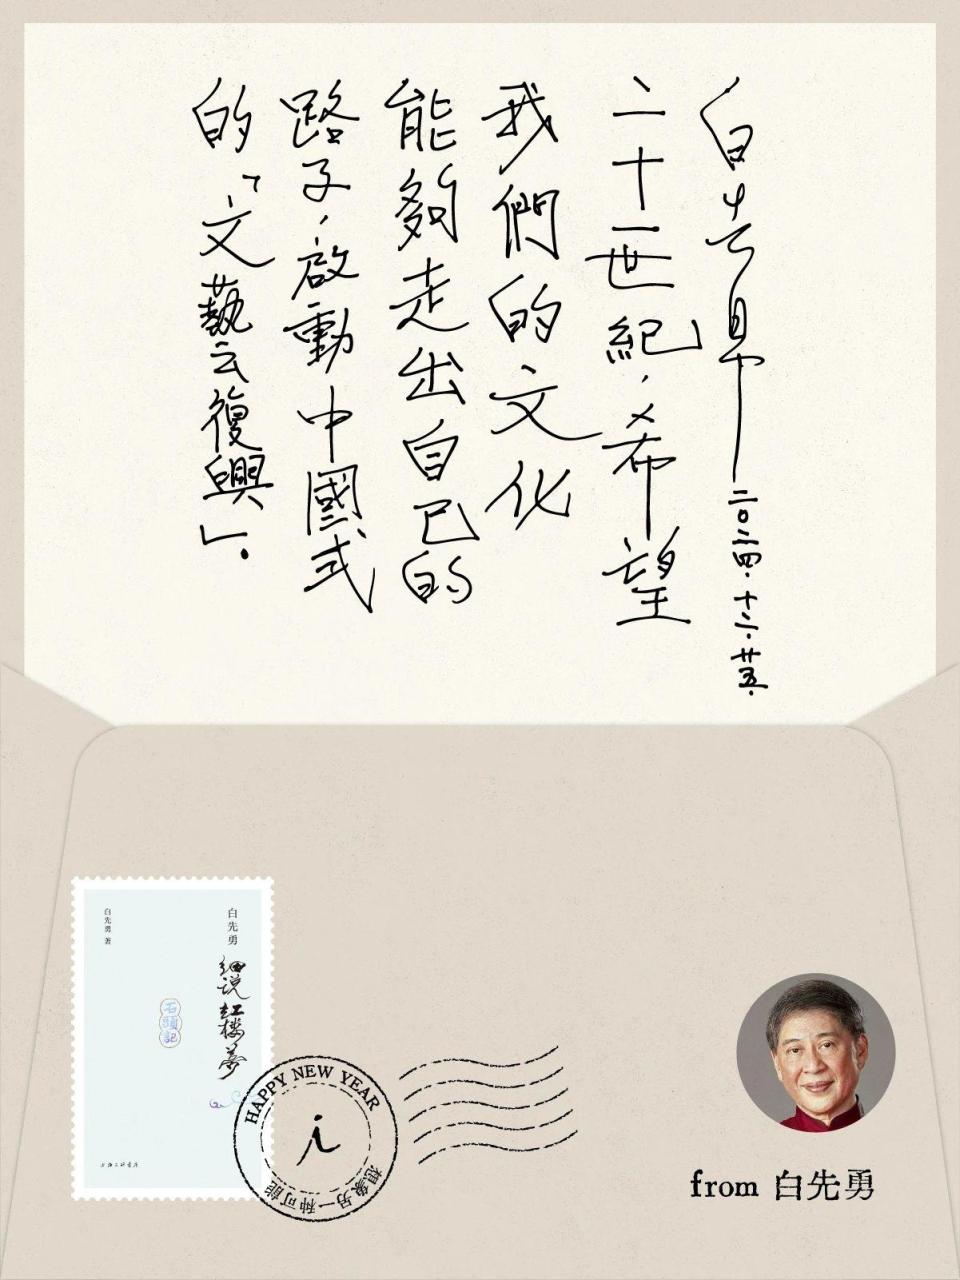 白先勇 二〇二四.十二.廿五.
二十一世紀,希望
我們的文化
能夠走出自己的
路子,啟動中國式
的「文藝復興」.
白先勇
细说红楼梦
石頭記
白先勇 著
上海三联书店
HAPPY NEW YEAR
i
想象另一种可能
from 白先勇